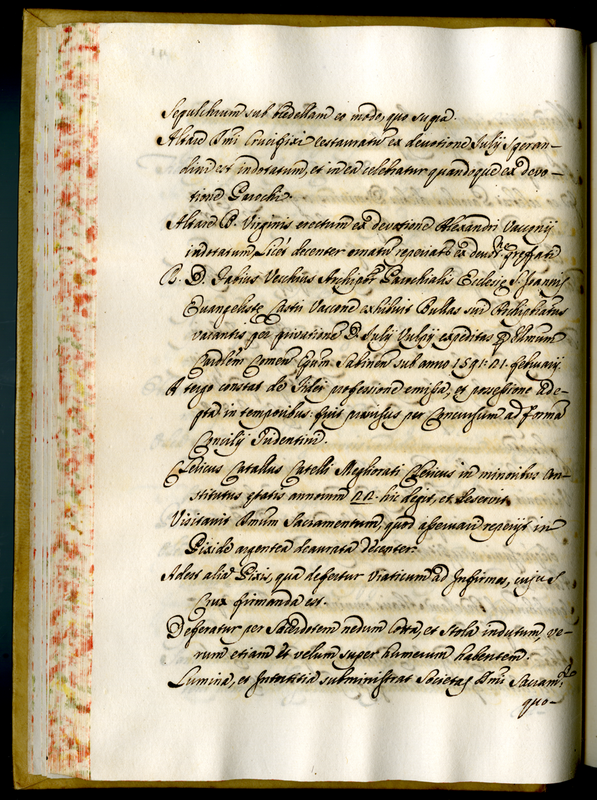 Sepulchrum sub bredellam eo modo, quo supra.
Altare Smi Crucifixi restauratu ex devotione Julij Speran-
dim est indotatum, et in eo celebratur quandoque ex devo-
tione Parochi.
Altare B. Virginis erectum ex devotione Alexandri Vacony
indotatum, licet decenter ornatu reperiatr ex devote prefati
R. D. Fabius Vecchius Archipbr Parochialis Ecclesie S. Joannis
Evangeliste Castri Vaccone exhibuit Bullas sui Archipbratus
vacantis per privatione D. Julij Vulpij expeditas p Illmum
Cardlem Comen Epum Sabinen sub anno 1591. 21. februarij.
A tergo constat de fidei professione emissa, et possessione ade-
pta in temporibus: fuit provisus per Concursum ad forma
Concilij Tridentini.
Clericus Catallus Catelli Megliorati Clericus in minoribus con-
stitutus etatis annorum 22. hic degit, et deservit.
Visitavit Smum Sacramentum, quod asservari reperijt in
Pixide argentea deaurata decenter.
Adest alia Pixis, qua defertur viaticum ad Infirmos, cujus
Crux firmanda est.
Deferatur per Sacerdotem nedum Cotta, et Stola indutum, ve-
rum etiam et velum super humerum habentem.
Lumina, et Intortitia subministrat Societas Smi Sacram.ti
quo-